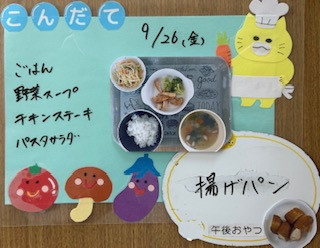 こんだて
9/26(金)
ごはん
野菜スープ
チキンステーキ
パスタサラダ
揚げパン
午後おやつ